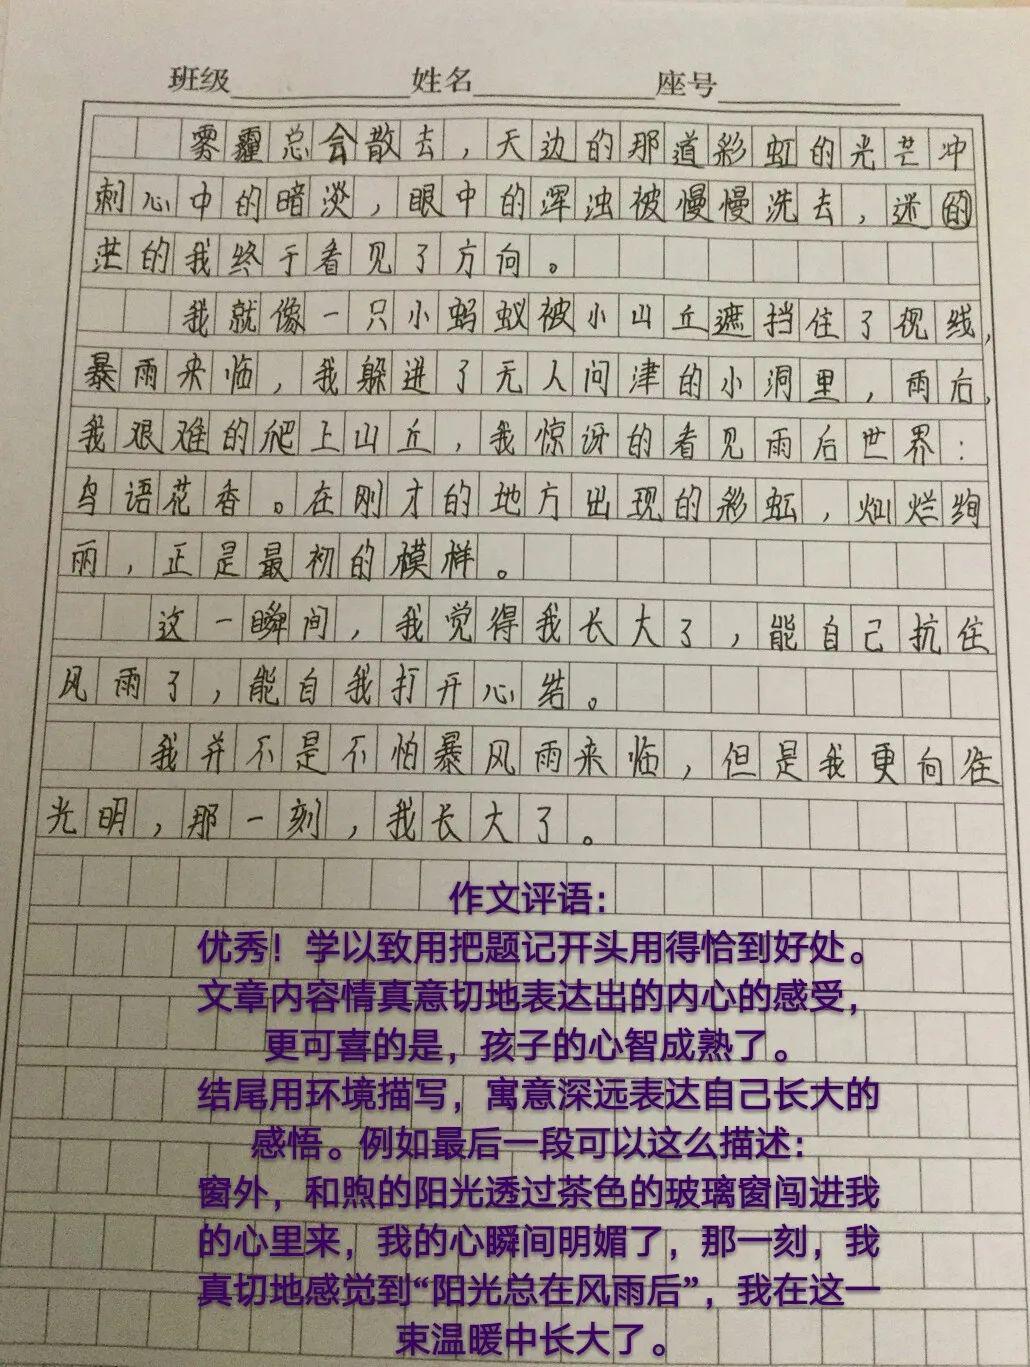 班级 姓名 座号
雾霾总会散去，天边的那道彩虹的光芒冲
刺心中的暗淡，眼中的浑浊被慢慢洗去，迷的
茫的我终于看见了方向。
我就像一只小蚂蚁被小山丘遮挡住了视线，
暴雨来临，我躲进了无人问津的小洞里，雨后，
我艰难的爬上山丘，我惊讶的看见雨后世界：
鸟语花香。在刚才的地方出现的彩虹，灿烂绚
丽，正是最初的模样。
这一瞬间，我觉得我长大了，能自己抗住
风雨了，能自我打开心结。
我并不是不怕暴风雨来临，但是我更向往
光明，那一刻，我长大了。
作文评语：
优秀！学以致用把题记开头用得恰到好处。
文章内容情真意切地表达出的内心的感受，
更可喜的是，孩子的心智成熟了。
结尾用环境描写，寓意深远表达自己长大的
感悟。例如最后一段可以这么描述：
窗外，和煦的阳光透过茶色的玻璃窗闯进我
的心里来，我的心瞬间明媚了，那一刻，我
真切地感觉到“阳光总在风雨后”，我在这一
束温暖中长大了。